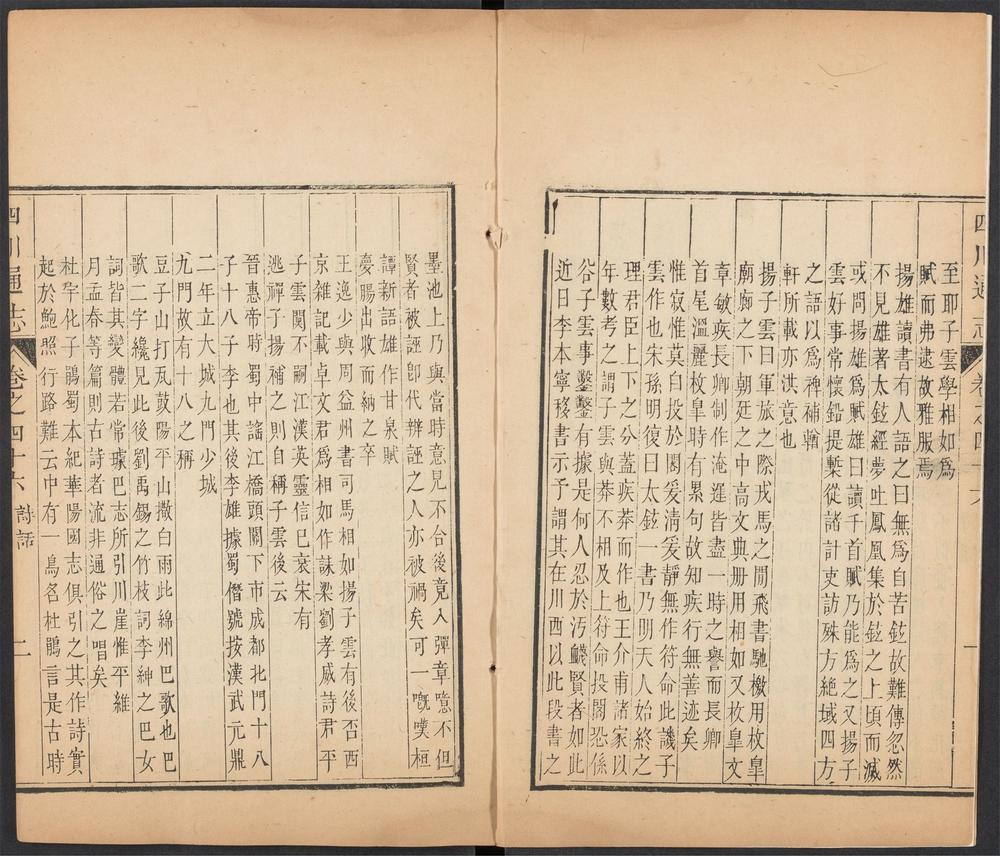 四川通志
卷之四十六
一
至耶子雲學相如為
賦而弗逮故雅服焉
揚雄讀書有人語之曰無為自苦鉉故難傳忽然
不見雄著太鉉經夢吐鳳凰集於鉉之上頃而滅
或問揚雄為賦雄曰讀千首賦乃能為之又揚子
雲好事常懷鉛提槧從諸計吏訪殊方絕域四方
之語以為裨補輶
軒所載亦洪意也
揚子雲曰軍旅之際戎馬之閒飛書馳檄用枚皐
廟廊之下朝廷之中高文典册用相如又枚皐文
章敏疾長卿制作淹遲皆盡一時之譽而長卿
首尾溫麗枚皐時有累句故知疾行無善迹矣
惟寂惟莫自投於閣爰淸爰靜無作符命此譏子
雲作也宋孫明復曰太鉉一書乃明天人始終之
理君臣上下之分蓋疾莽而作也王介甫諸家以
年數考之謂子雲與莽不相及上符命投閣恐係
谷子雲事鑿鑿有據是何人忍於汚衊賢者如此
近日李本寧移書示予謂其在川西以此段書之
墨池上乃與當時意見不合後竟入彈章噫不但
賢者被誣卽代辨誣之人亦被禍矣可一嘅噗桓
譚新語雄作甘泉賦
夢腸出收而納之卒
王逸少與周益州書司馬相如揚子雲有後否西
京雜記載卓文君為相如作誄梁劉孝威詩君平
子雲関不嗣江漢英靈信已衰宋有
逃禪子揚補之則自稱子雲後云
晉惠帝時蜀中謠江橋頭關下市成都北門十八
子十八子李也其後李雄據蜀僭號按漢武元鼎
二年立大城九門少城
九門故有十八之稱
豆子山打瓦鼓陽平山撒白雨此綿州巴歌也巴
歌二字纔見此後劉禹錫之竹枝詞李紳之巴女
詞皆其變體若常璩巴志所引川崖惟平維
月孟春等篇則古詩者流非通俗之唱矣
杜宇化子鵑蜀本紀華陽國志俱引之其作詩實
起於鮑照行路難云中有一鳥名杜鵑言是古時
四川通志
卷之四十六
詩話
二